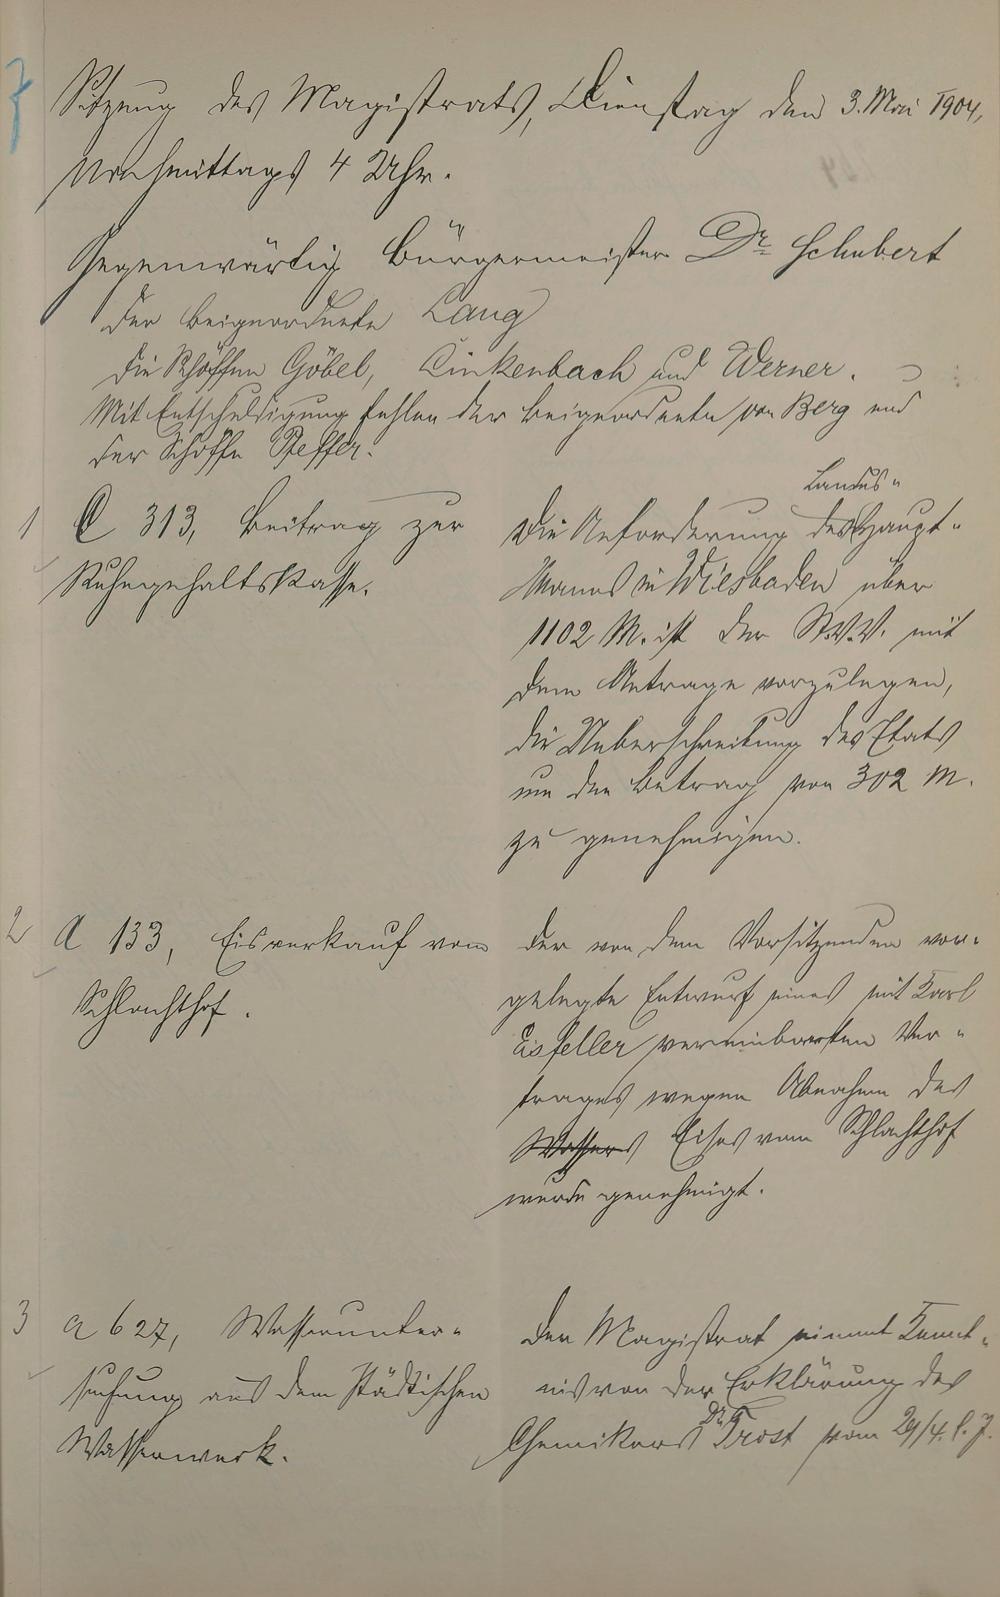 7
Sitzung des Magistrats, Dienstag den 3. Mai 1904,
Nachmittags 4 Uhr.
Gegenwärtig Bürgermeister Dr Schubert
der Beigeordnete Lang
die Schöffen Göbel, Linkenbach und Werner.
Mit Entschuldigung fehlen der Beigeordnete von Berg und
der Schöffe Steffer.
1
C 313, Beitrag zur
Ruhegehaltskasse.
Landes-
Die Anforderung des Haupt-
Manns in Wiesbaden über
1102 M. ist der St.V.V. mit
dem Antrage vorzulegen,
die Ueberschreitung des Etats
um den Betrag von 302 M.
zu genehmigen.
2
A 133, Eisverkauf vom
Schlachthof.
Der von dem Vorsitzenden vor-
gelegte Entwurf eines mit Karl
Eisfeller vereinbarten Ver-
trages wegen Abnahme des
Wassers Eises vom Schlachthof
wurde genehmigt.
3
a 627, Wasserunter-
suchung aus dem städtischen
Wasserwerk.
Der Magistrat nimmt Kennt-
nis von der Erklärung des
Dr.
Chemikers Trost vom 29/4. l. J.